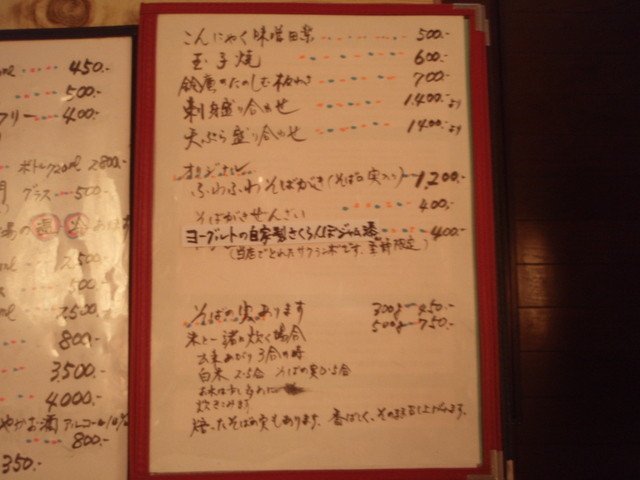 450.-
500.-
フリー 400.-
ボトル720ml 2,800.-
グラス 500.-
2,500
500.-
2,500
800.-
3,500.-
4,000.-
やかお酒 アルコール10%
800.-
350.-
こんにゃく味噌田楽 500.-
玉子焼 600.-
鈴廣のたのしむ板わさ 700.-
刺身盛り合わせ 1,400.-より
天ぷら盛り合わせ 1400.-より
ふわふわそばがき(そば白実入り) 1,200.-
そばがきぜんざい 400.-
ヨーグルトの自家製さくらんぼジャム添 400.-
(当店でとれたサクランボです。季節限定)
そばの実あります 300g 450.-
500g 750.-
米と一緒に炊く場合
出来あがり3合の時
白米 2.5合 そばの実0.5合
お水は少し多めに
炊きこみます
焙ったそばの実もあります。香ばしく、そのまま召し上がれます。